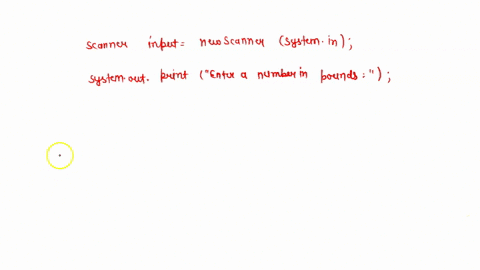 scanner input = newScanner (system.in);
system.out. print ("Enter a number in pounds : ");